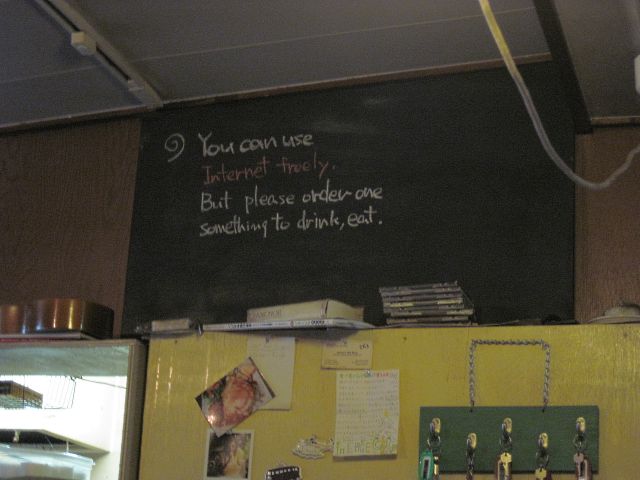 You can use
Internet freely.
But please order one
something to drink, eat.